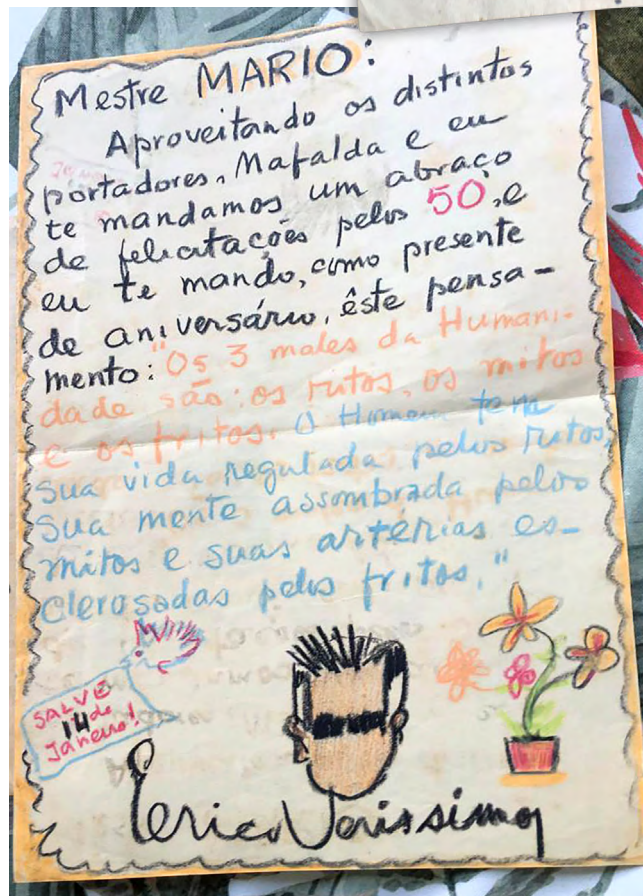 Mestre MARIO:
Aproveitando os distintos
portadores, Mafalda e eu
te mandamos um abraço
de felicitações pelos 50, e
eu te mando, como presente
de aniversário, êste pensa-
mento: "Os 3 males da Humani-
dade são: os ritos, os mitos
e os fritos. O Homem tem
sua vida regulada pelos ritos,
sua mente assombrada pelos
mitos e suas artérias es-
clerosadas pelos fritos."
SALVE
14 de
Janeiro!
Erico Verissimo